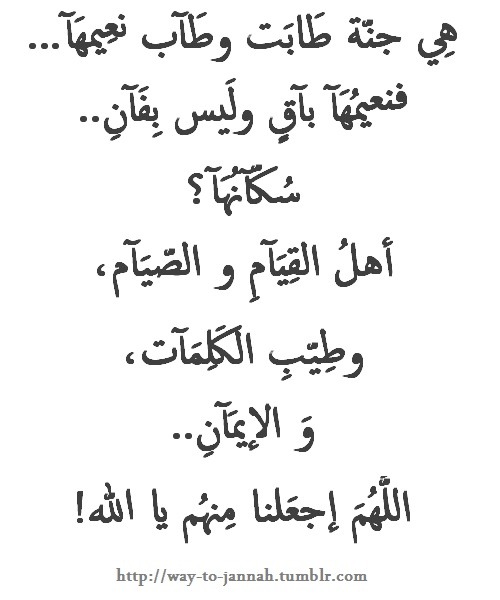 هِي جنّة طَابَت وطَآب نعِيمهَآ...
فنعيمُهَآ بآقٍ ولَيس بِفَآنِ..
سُكآّنُهَآ؟
أهلُ القِيَآمِ و الصّيَآم،
وطِيّبِ الكَلِمَآت،
وَ الإيمَآنِ..
اللَّهُمَ إجعَلنا مِنهُم يا الله!
http://way-to-jannah.tumblr.com